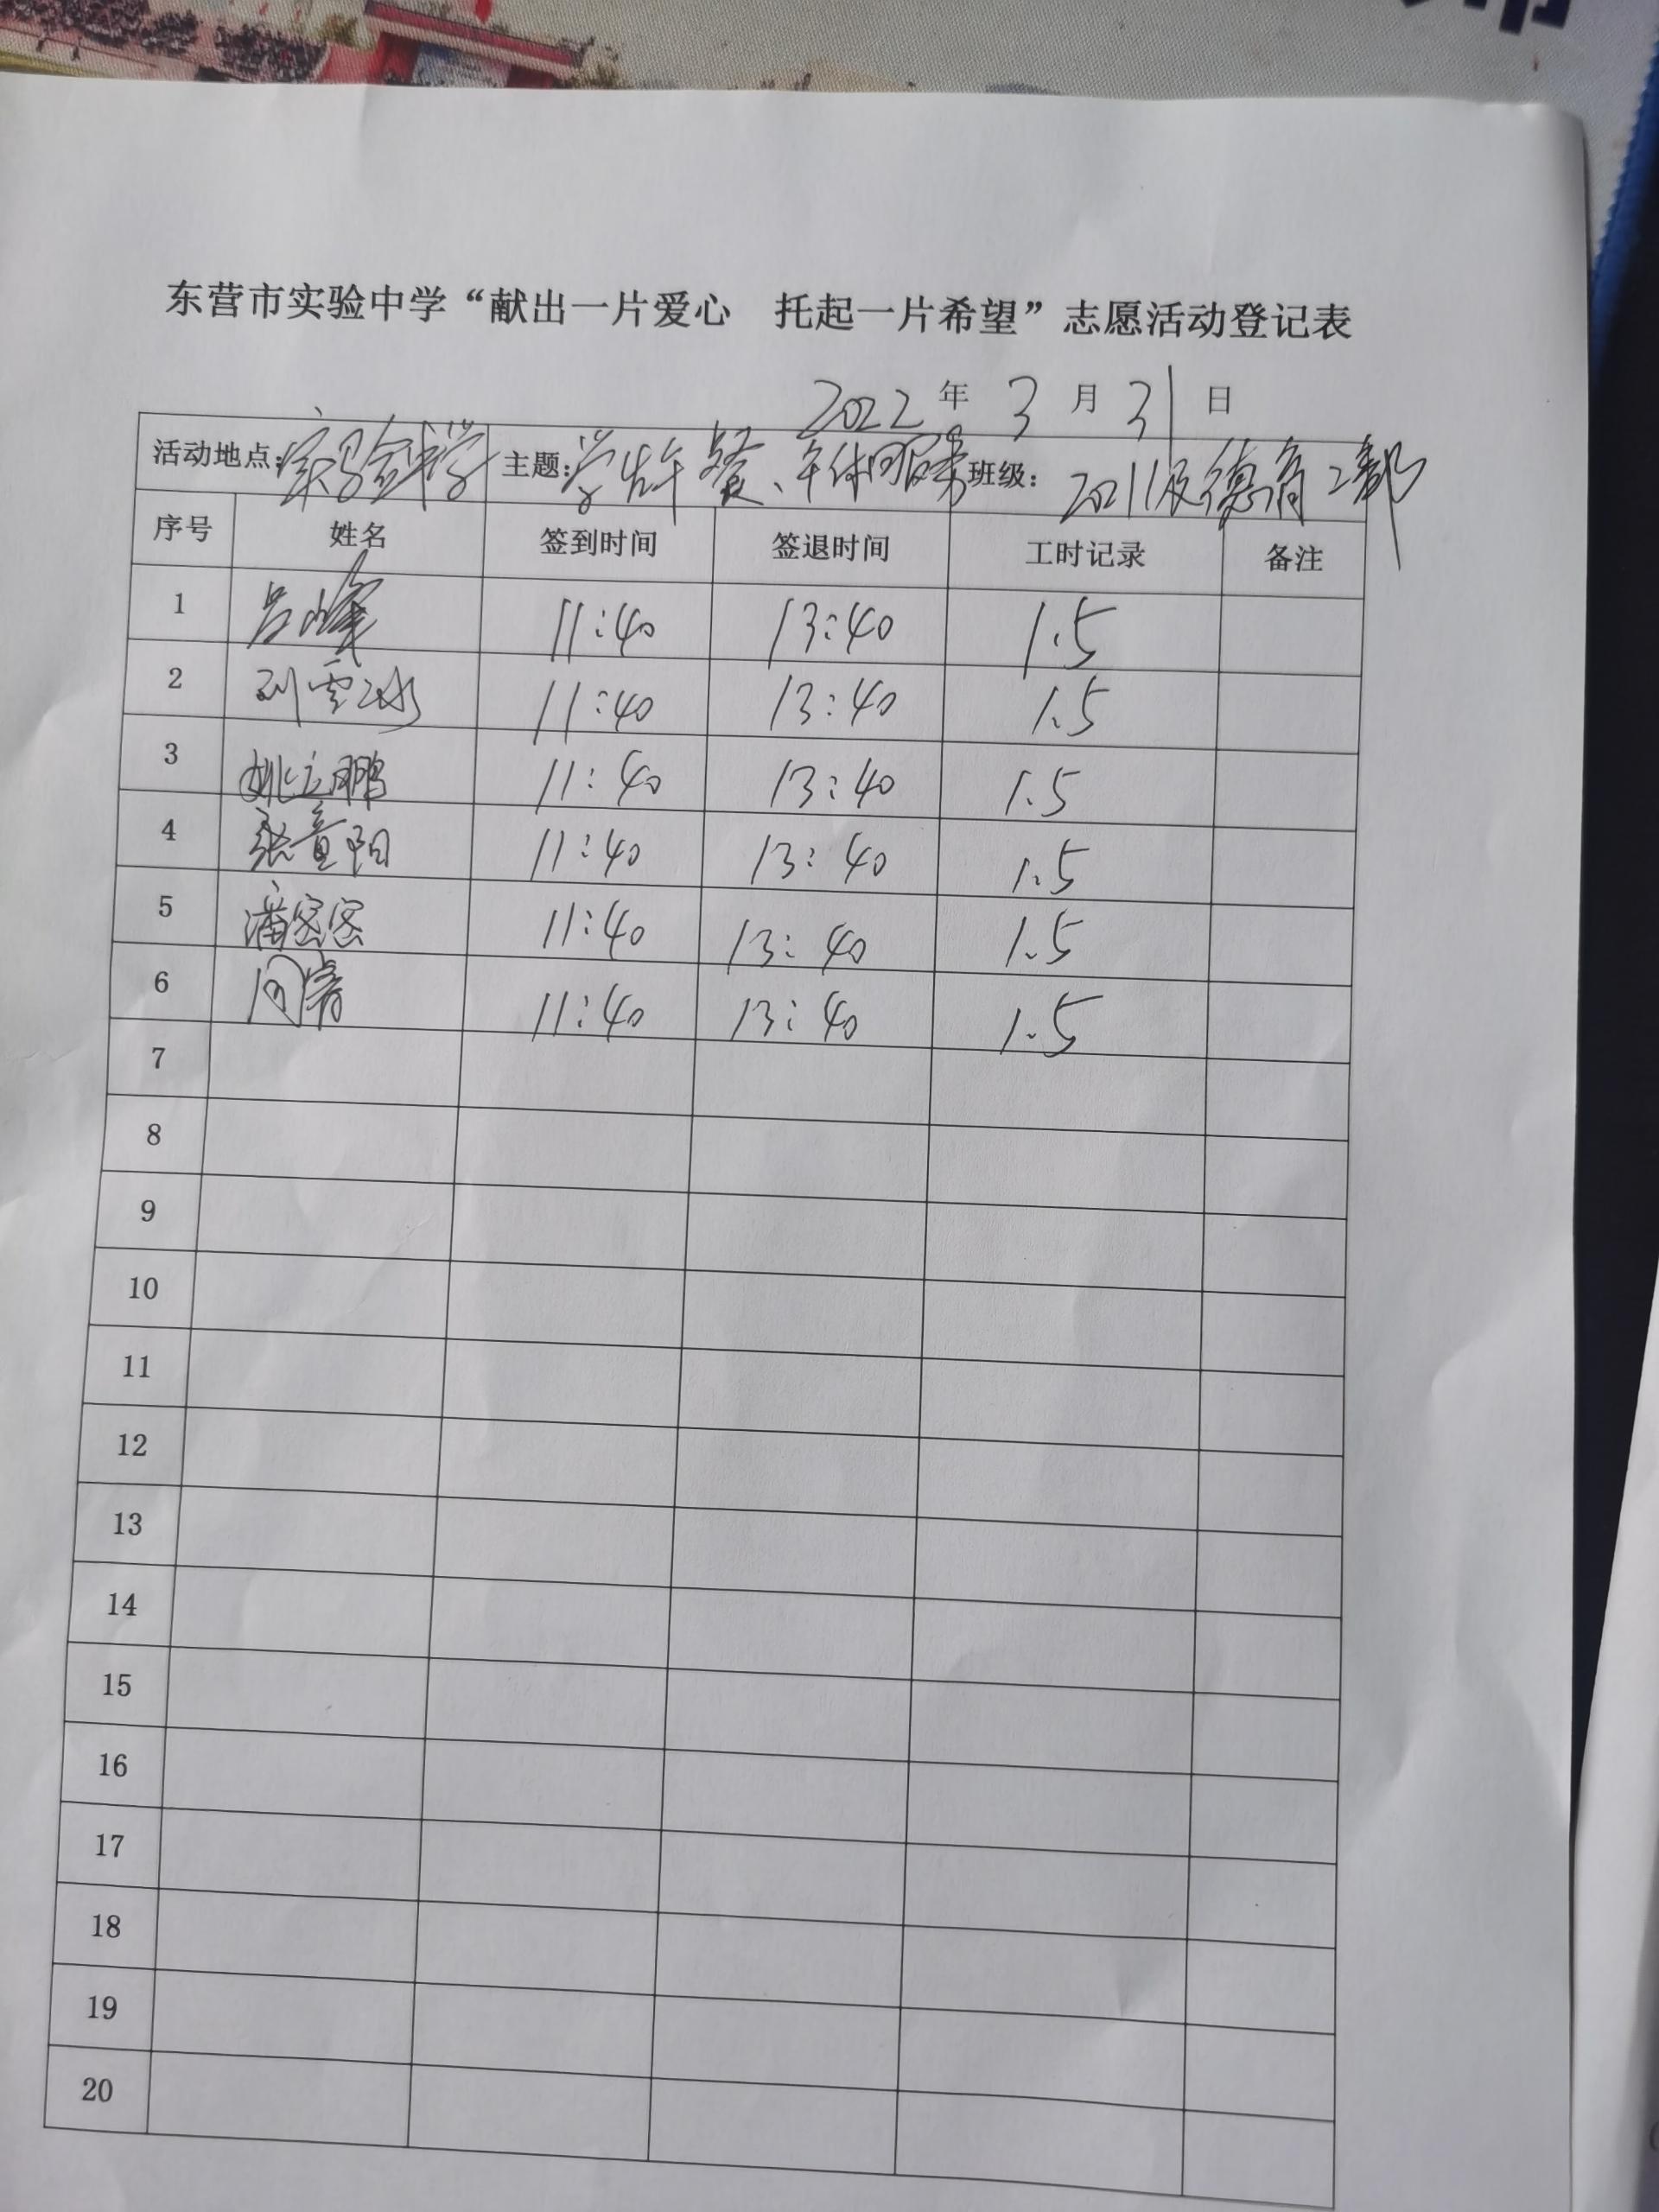 东营市实验中学“献出一片爱心 托起一片希望”志愿活动登记表
2022年3月31日
活动地点:实验中学 主题:学生午餐、午休服务 班级:2021级德育二部
序号 姓名 签到时间 签退时间 工时记录 备注
1 吕峰 11:40 13:40 1.5
2 刘雪冰 11:40 13:40 1.5
3 姚立鹏 11:40 13:40 1.5
4 张童阳 11:40 13:40 1.5
5 潘密密 11:40 13:40 1.5
6 11:40 13:40 1.5
7
8
9
10
11
12
13
14
15
16
17
18
19
20